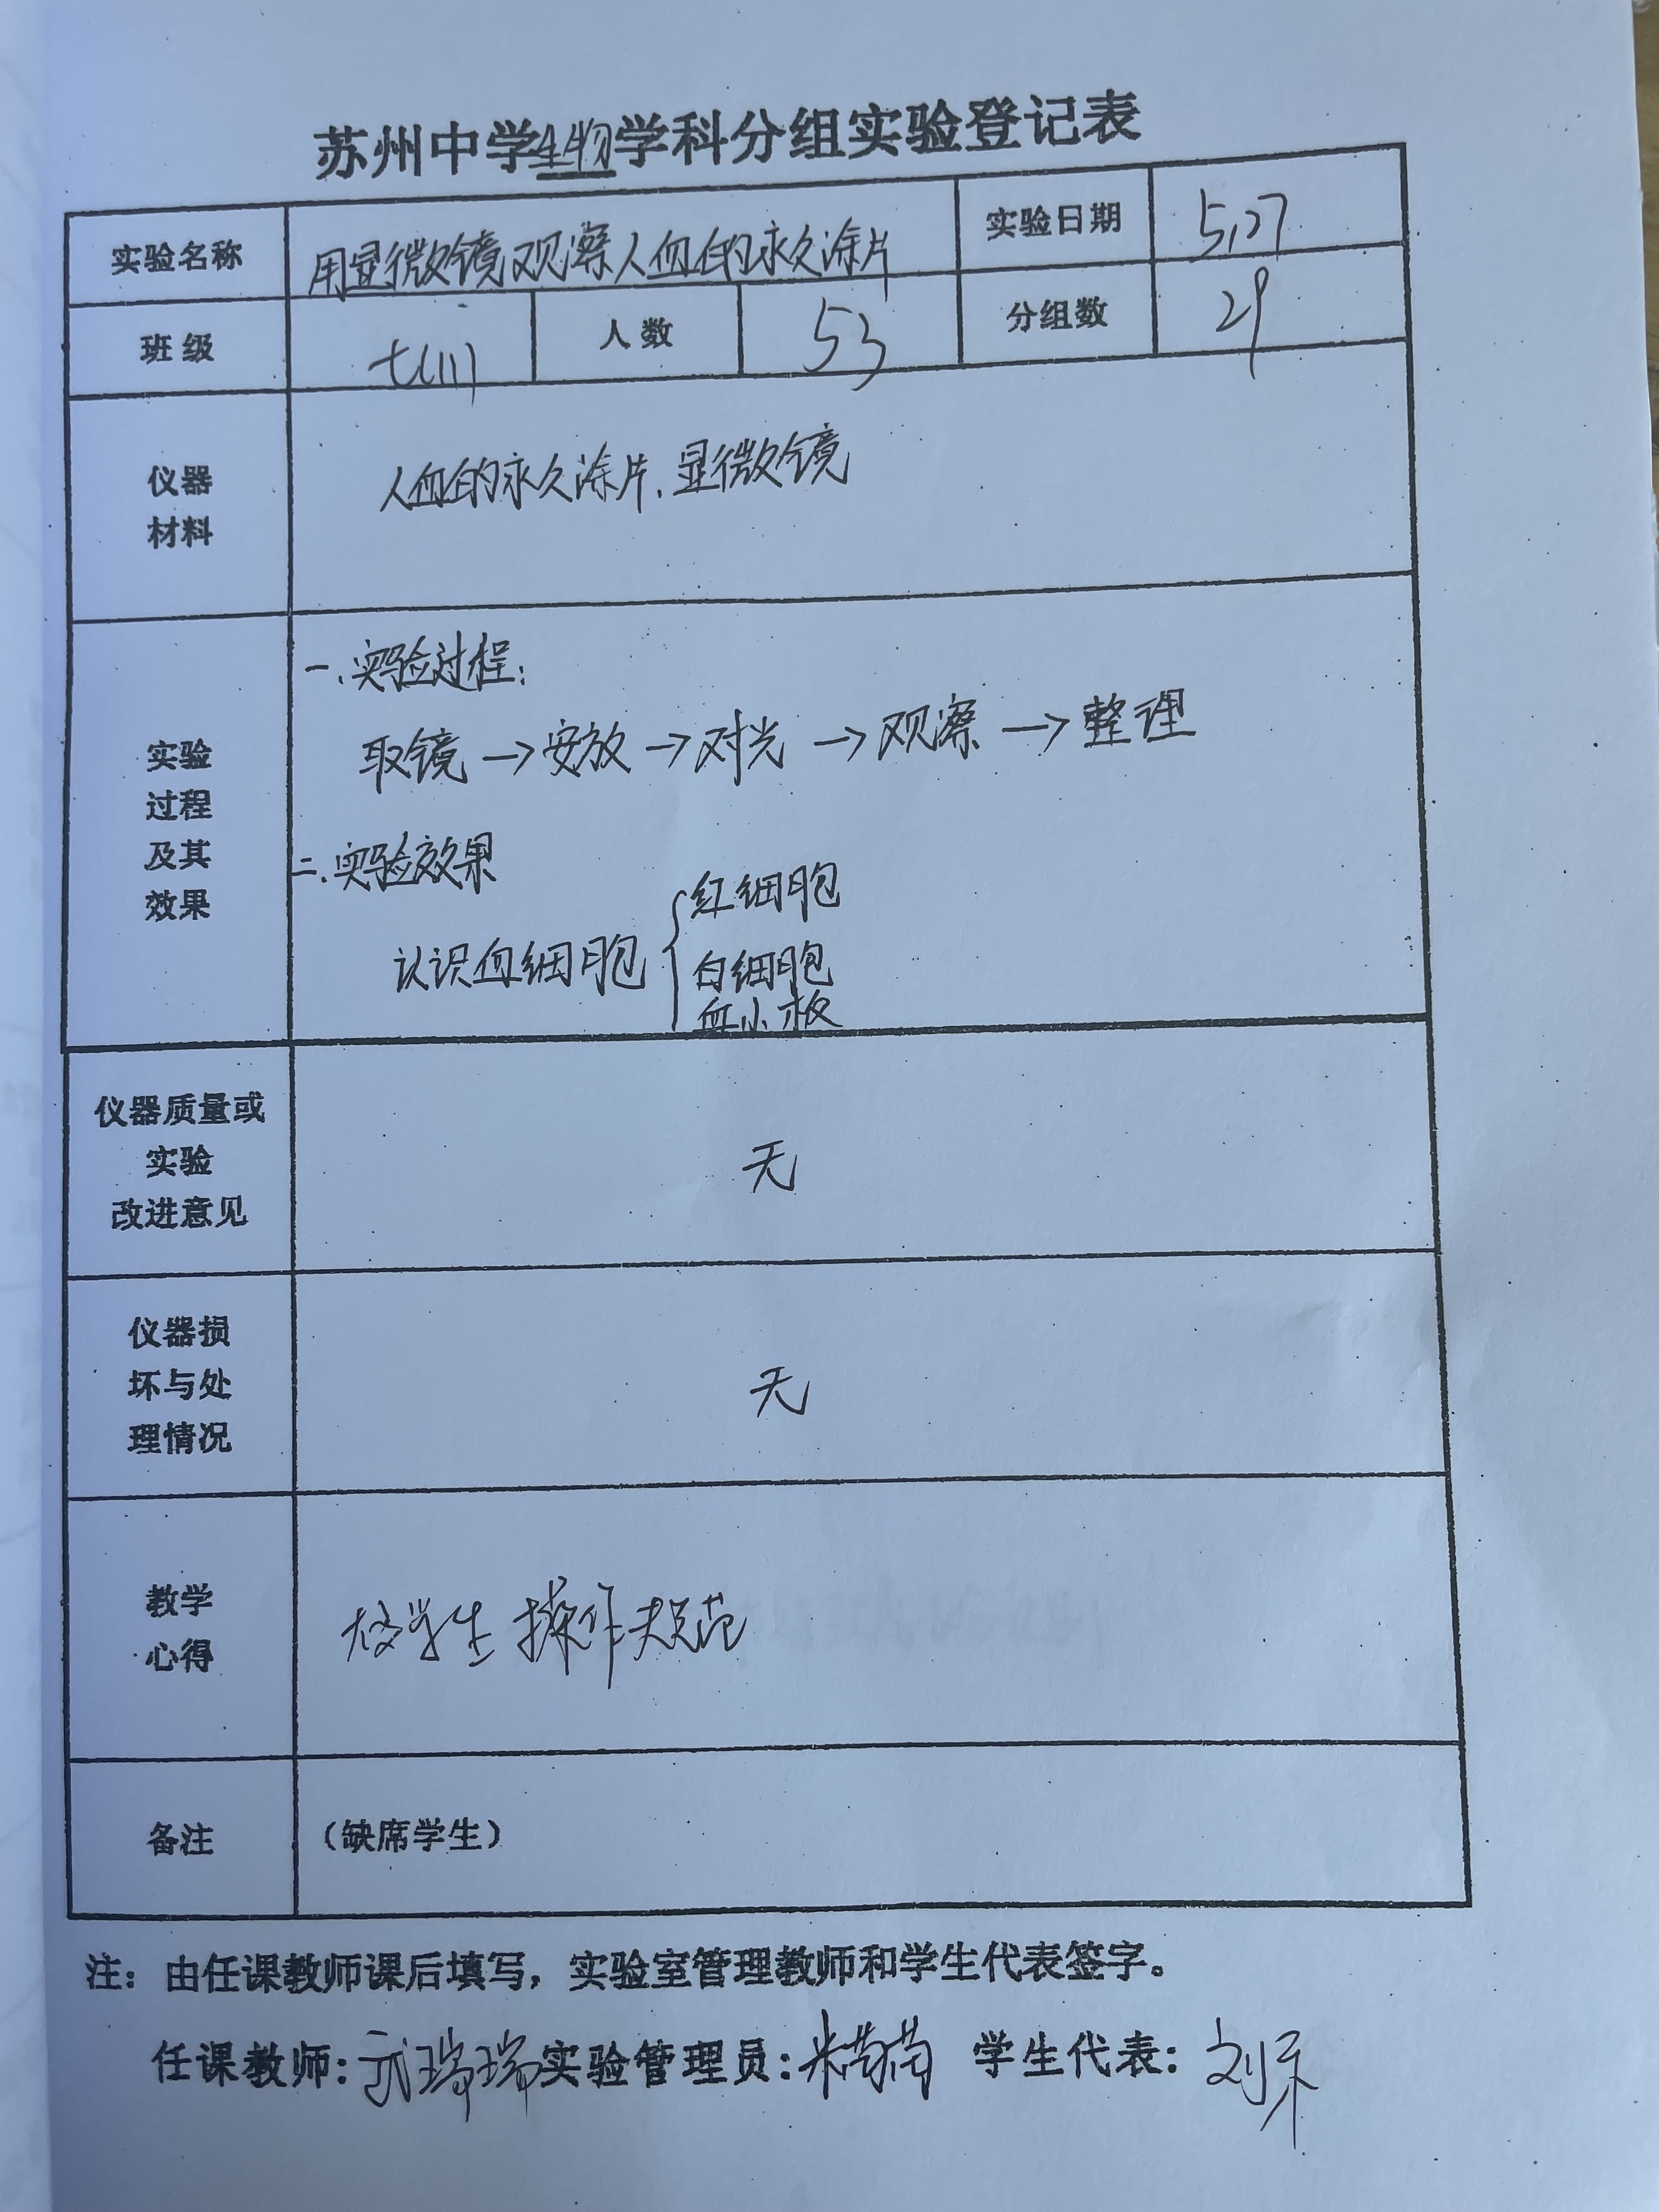 苏州中学生物学科分组实验登记表
实验名称 用显微镜观察人血的永久涂片 实验日期 5.27
班级 七(11) 人数 53 分组数 29
仪器
材料
人血的永久涂片、显微镜
实验
过程
及其
效果
一.实验过程:
取镜→安放→对光→观察→整理
二.实验效果
认识血细胞 { 红细胞
白细胞
血小板
仪器质量或
实验
改进意见
无
仪器损
坏与处
理情况
无
教学
心得
学生操作规范
备注 (缺席学生)
注：由任课教师课后填写，实验室管理教师和学生代表签字。
任课教师: 瑞瑞 实验管理员: 学生代表: 刘